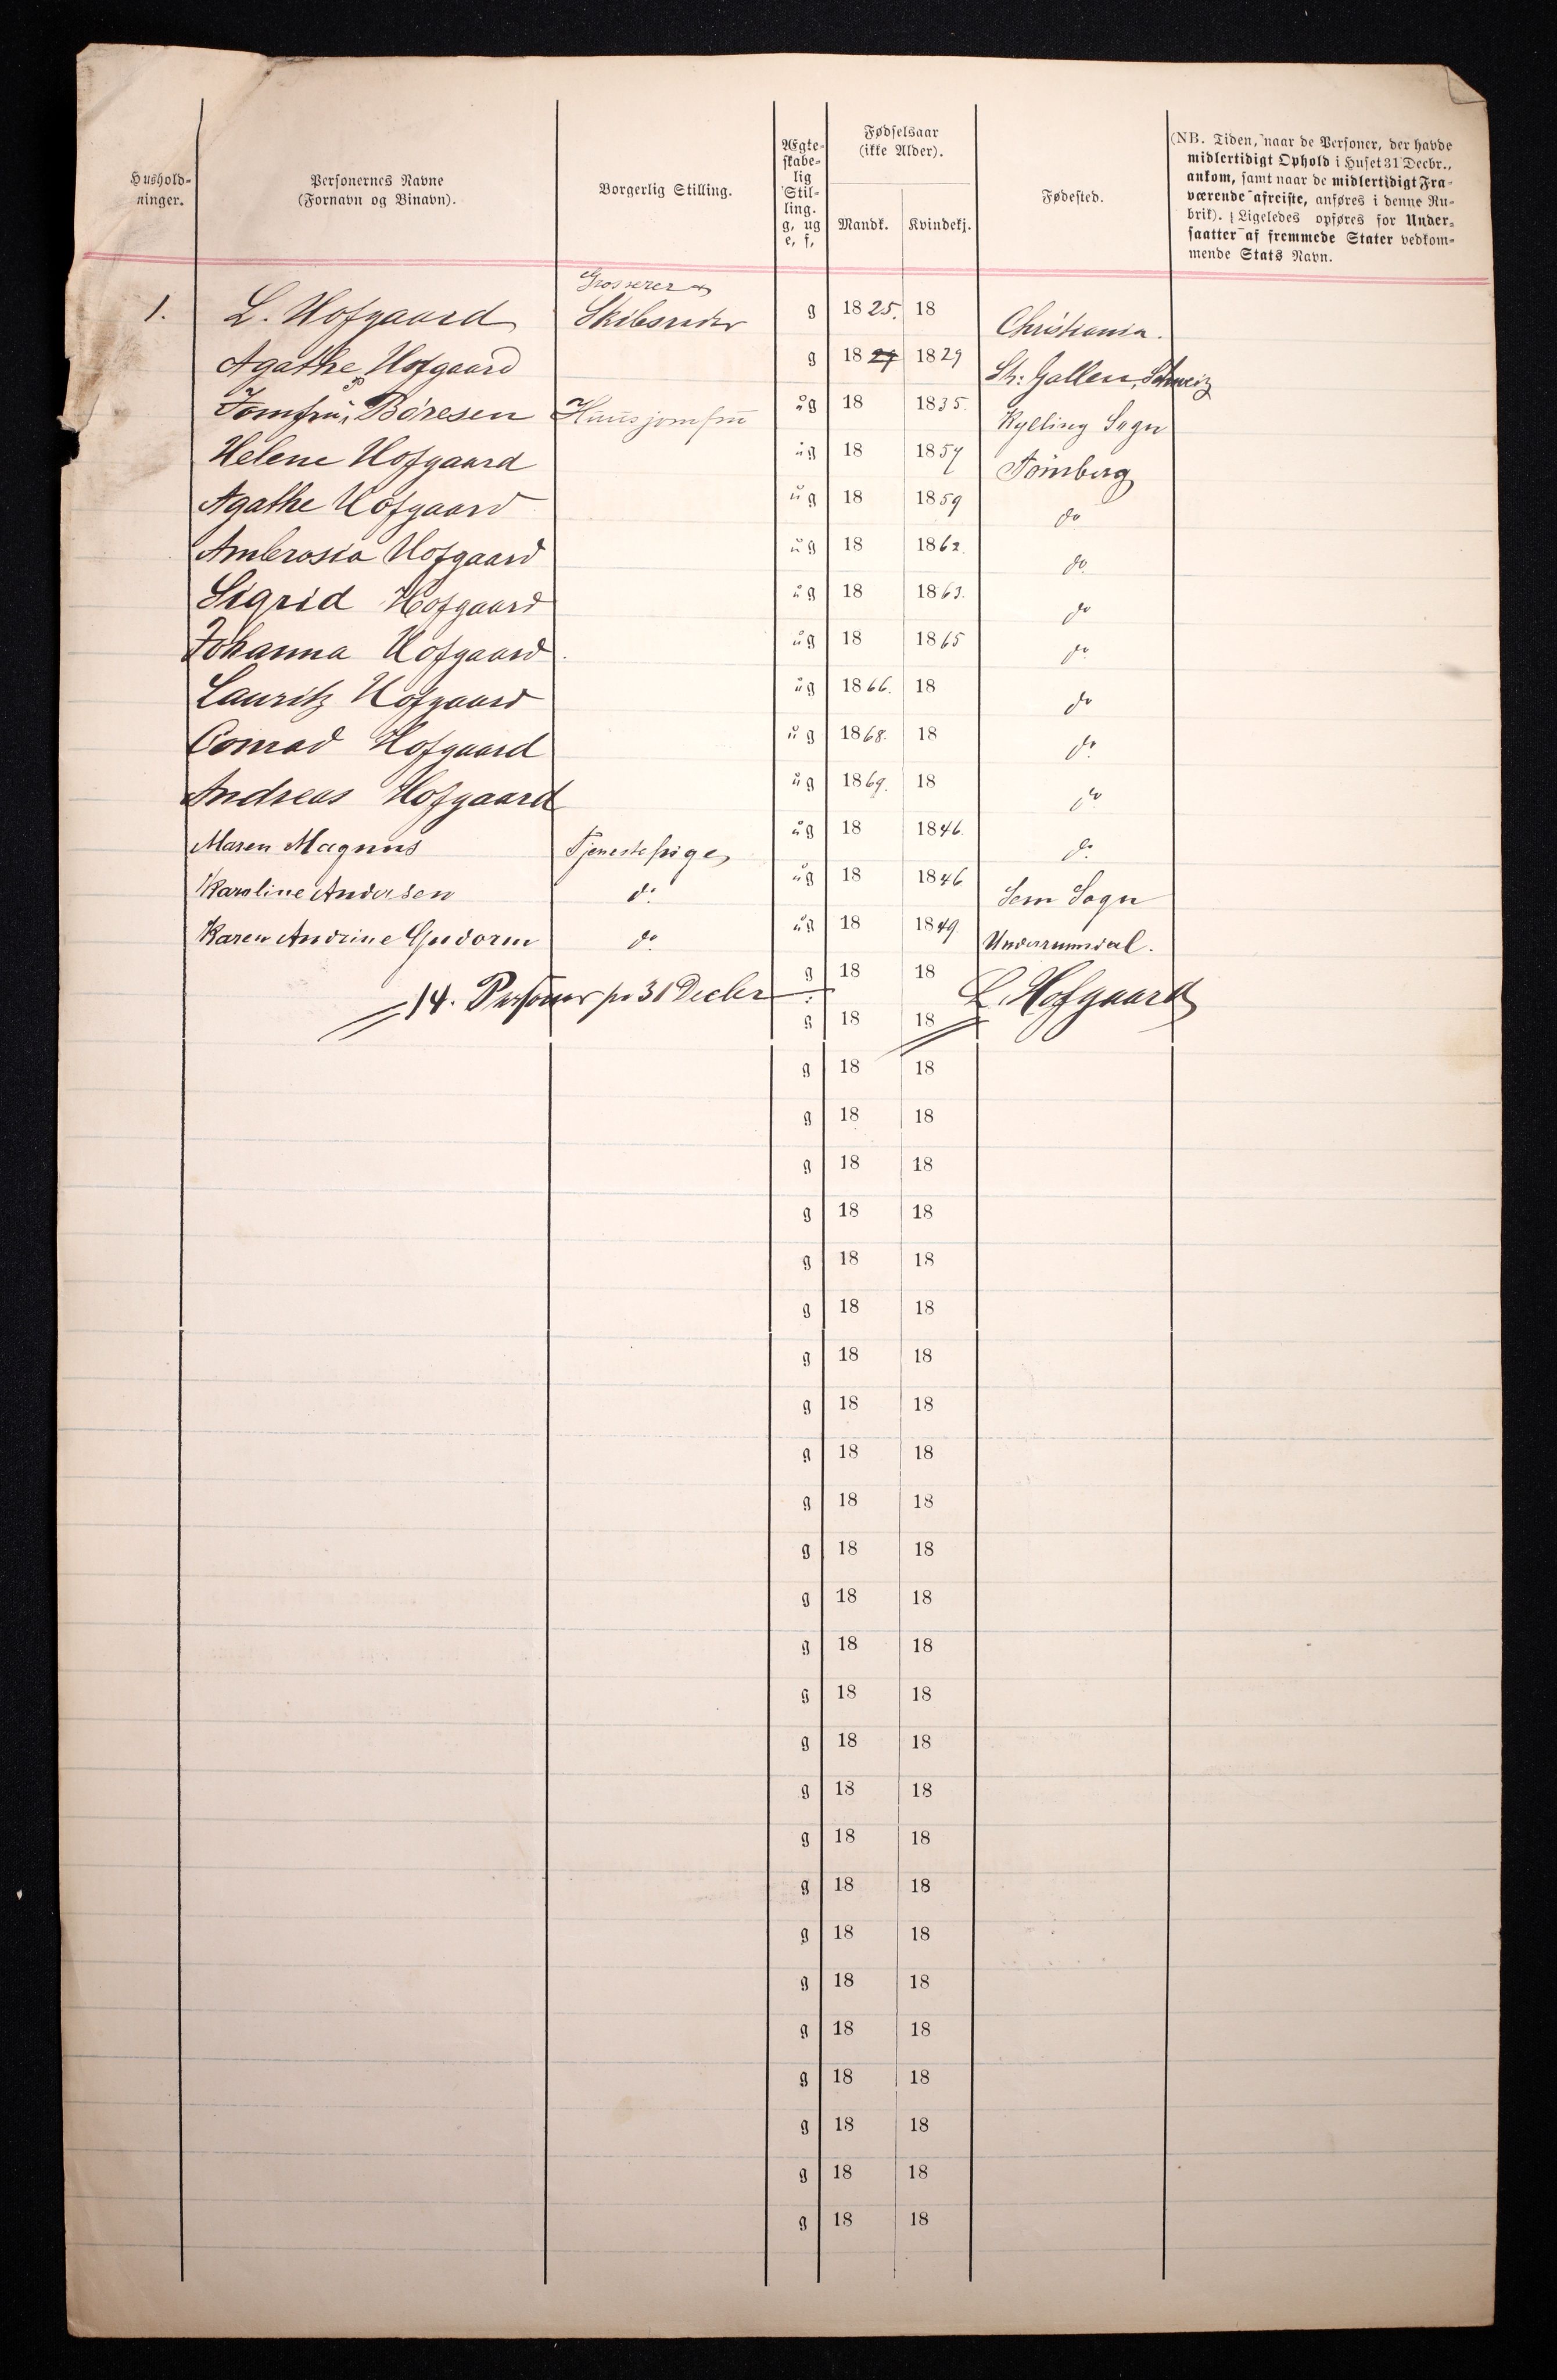 Hushold-
ninger.
Personernes Navne
(Fornavn og Binavn).
Borgerlig Stilling.
Ægte-
skabe-
lig
Stil-
ling.
g, ug
e, f,
Fødselsaar
(ikke Alder).
Mandk. Kvindekj.
Fødested.
(NB. Tiden, naar de Personer, der havde
midlertidigt Ophold i Huset 31 Decbr.,
ankom, samt naar de midlertidigt Fra-
værende afreiste, anføres i denne Ru-
brik). Ligeledes opføres for Under-
saatter af fremmede Stater vedkom-
mende Stats Navn.
Grosserer &
1. L. Hofgaard Skibsreder g 1825. 18 Christiania.
Agathe Hofgaard g 1829 1829 St: Gallen, Schweiz
Jomfrü Børesen Huusjomfrü üg 18 1835. Sogn
Helene Hofgaard üg 18 1857 Tönsberg
Agathe Hofgaard üg 18 1859 do
Ambrosia Hofgaard üg 18 1862. do.
Sigrid Hofgaard üg 18 1863. do
Johanna Hofgaard üg 18 1865 do.
Lauritz Hofgaard üg 1866. 18 do
Conrad Hofgaard üg 1868. 18 do.
Andreas Hofgaard üg 1869. 18 do
Maren Magnus Tjenestepige üg 18 1846. do.
Karoline Andersen do. üg 18 1846 Sem Sogn
Karen Andrine Gudorm do. üg 18 1849
g 18 18
14. Personer pr 31 Decbr L. Hofgaard
g 18 18
g 18 18
g 18 18
g 18 18
g 18 18
g 18 18
g 18 18
g 18 18
g 18 18
g 18 18
g 18 18
g 18 18
g 18 18
g 18 18
g 18 18
g 18 18
g 18 18
g 18 18
g 18 18
g 18 18
g 18 18
g 18 18
g 18 18
g 18 18
g 18 18
g 18 18